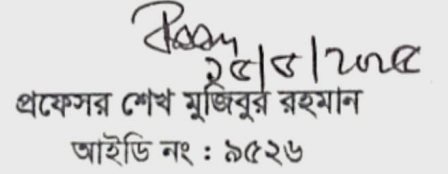 ২৫/৫/২০২৫
প্রফেসর শেখ মুজিবুর রহমান
আইডি নং : ৯৫২৬